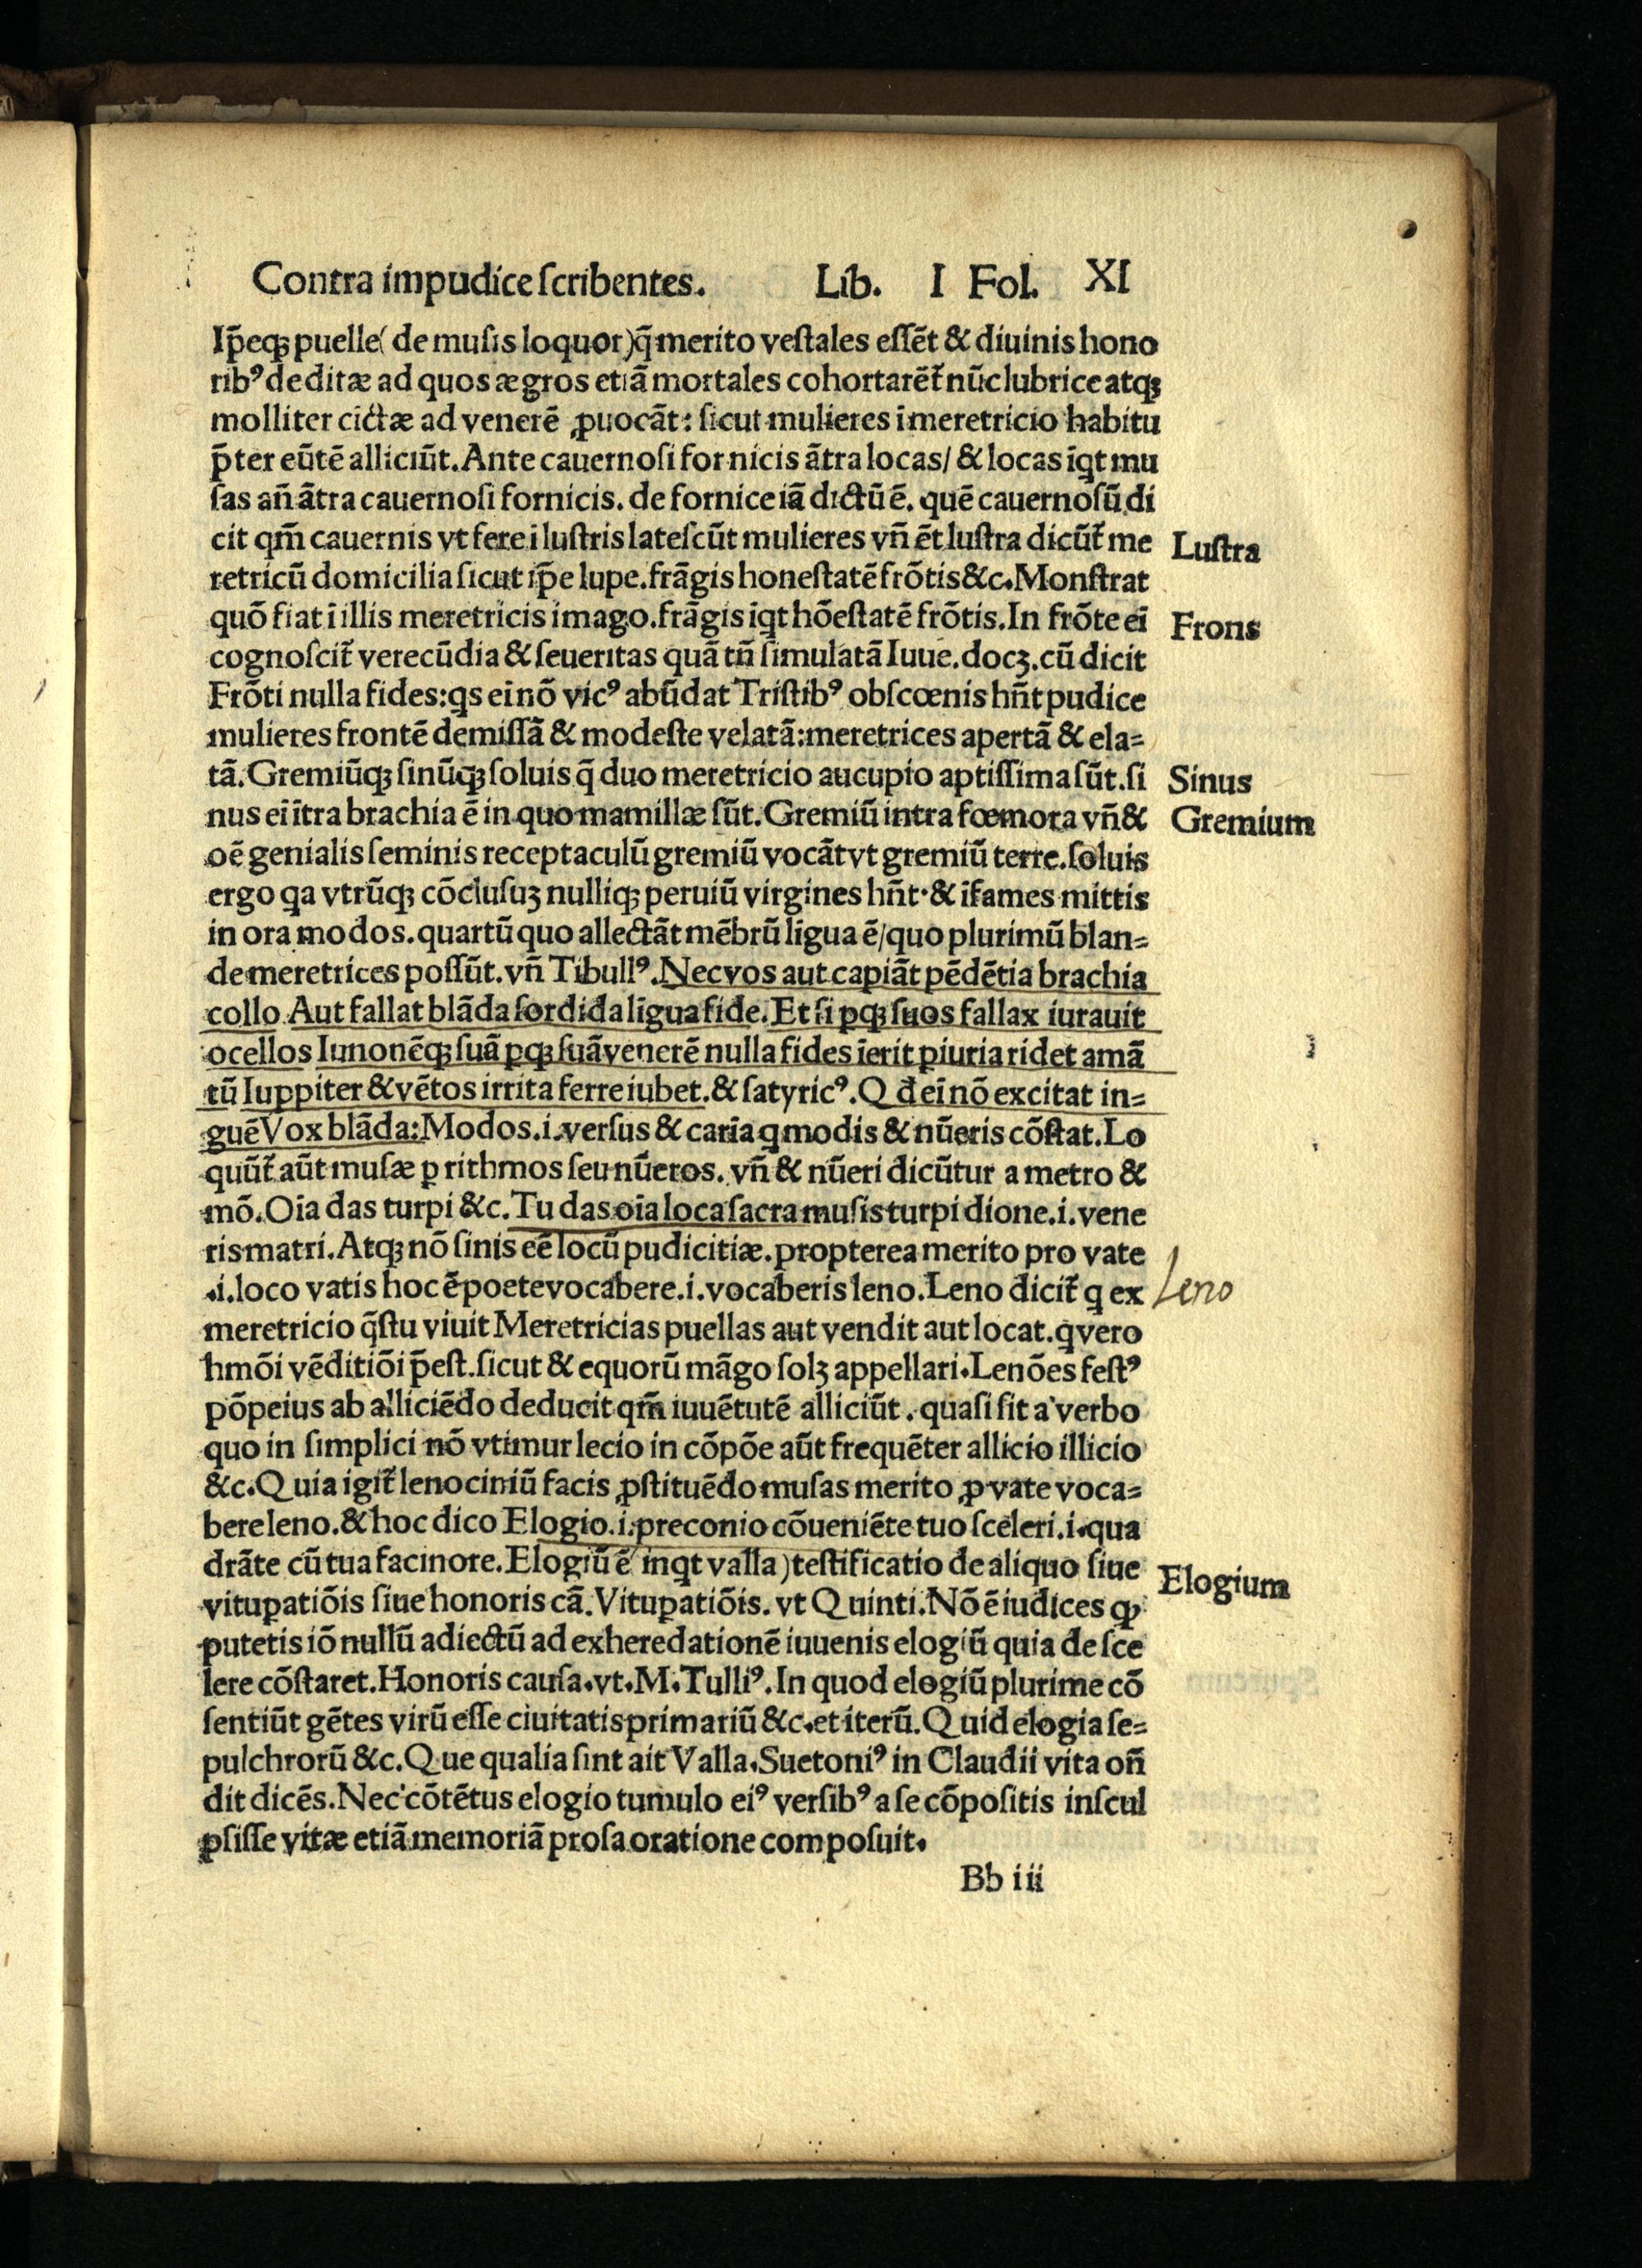 Contra impudice ſcribentes. Lib. I Fol. XI
Ip̄eqꝫ puelle( de muſis loquor)q̄ merito veſtales eſſēt & diuinis hono
ribꝰ deditæ ad quos ægros etiā mortales cohortarēt᷑ nūc lubrice atqꝫ
molliter cictæ ad venerē ꝓuocāt: ſicut mulieres ī meretricio habitu
p̄ter eūtē alliciūt. Ante cauernoſi fornicis ātra locas/ & locas īqt mu
ſas an̄ ātra cauernoſi fornicis. de fornice iā dictū ē. quē cauernoſū di
cit qm̄ cauernis vt fere ī luſtris lateſcūt mulieres vn̄ ēt luſtra dicūt᷑ me
Luſtra
retricū domicilia ſicut ip̄e lupe. frāgis honeſtatē frōtis &c. Monſtrat
quō fiat ī illis meretricis imago. frāgis īqt hōeſtatē frōtis. In frōte eī
Frons
cognoſcit᷑ verecūdia & ſeueritas quā tn̄ ſimulatā Iuue. docꝫ. cū dicit
Frōti nulla fides: qs eī nō vicꝰ abūdat Triſtibꝰ obſcœnis hn̄t pudice
mulieres frontē demiſſā & modeſte velatā: meretrices apertā & ela-
tā. Gremiūqꝫ ſinūqꝫ ſoluis q̄ duo meretricio aucupio aptiſſima ſūt. ſi
Sinus
nus eī ītra brachia ē in quo mamillæ ſūt. Gremiū intra fœmora vn̄ &
Gremium
oē genialis ſeminis receptaculū gremiū vocāt vt gremiū terre. ſoluis
ergo qa vtrūqꝫ cōcluſuꝫ nulliqꝫ peruiū virgines hn̄t. & īfames mittis
in ora modos. quartū quo allectāt mēbrū līgua ē/ quo plurimū blan-
de meretrices poſſūt. vn̄ Tibullꝰ. Nec vos aut capiāt pēdētia brachia
collo Aut fallat blāda ſordida līgua fide. Et ſi ꝑqꝫ ſuos fallax iurauit
ocellos Iunonēqꝫ ſuā ꝑqꝫ ſuā venerē nulla fides īerit ꝑiuria ridet amā
tū Iuppiter & vētos irrita ferre iubet. & ſatyricꝰ. Q đ eī nō excitat in-
guē Vox blāda: Modos. i. verſus & carīa q modis & nūeris cōſtat. Lo
quūt᷑ aūt muſæ ꝑ rithmos ſeu nūeros. vn̄ & nūeri dicūtur a metro &
mō. Oīa das turpi &c. Tu das oīa loca ſacra muſis turpi dione. i. vene
ris matri. Atqꝫ nō ſinis eē locū pudicitiæ. propterea merito pro vate
.i. loco vatis hoc ē poete vocabere. i. vocaberis leno. Leno dicit᷑ q ex
Leno
meretricio q̄ſtu viuit Meretricias puellas aut vendit aut locat. q vero
hmōi vēditiōi p̄eſt. ſicut & equorū māgo ſolꝫ appellari. Lenōes feſtꝰ
pōpeius ab alliciēdo deducit qm̄ iuuētutē alliciūt. quaſi ſit a verbo
quo in ſimplici nō vtimur lecio in cōpōe aūt frequēter allicio illicio
&c. Quia igit᷑ lenociniū facis ꝓſtituēdo muſas merito ꝓ vate voca-
bere leno. & hoc dico Elogio. i. preconio cōueniēte tuo ſceleri. i. qua
drāte cū tua facinore. Elogiū ē inqt valla) teſtificatio de aliquo ſiue
Elogium
vituꝑatiōis ſiue honoris cā. Vituꝑatiōis. vt Quinti. Nō ē iudices ꝙ
putetis iō nullū adiectū ad exheredationē iuuenis elogiū quia de ſce
lere cōſtaret. Honoris cauſa. vt. M. Tulliꝰ. In quod elogiū plurime cō
ſentiūt gētes virū eſſe ciuitatis primariū &c. et iterū. Quid elogia ſe-
pulchrorū &c. Que qualia ſint ait Valla. Suetoniꝰ in Claudii vita on̄
dit dicēs. Nec cōtētus elogio tumulo eiꝰ verſibꝰ a ſe cōpoſitis inſcul
pſiſſe vitæ etiā memoriā proſa oratione compoſuit.
Bb iii